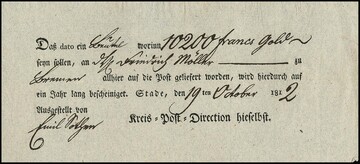 Daß dato ein Beutel worinn 10200 francs Gold
seyn sollen, an Friedrich Möller zu
Bremen allhier auf die Post geliefert worden, wird hierdurch auf
ein Jahr lang bescheiniget. Stade, den 19ten October 1812
Ausgestellt von Kreis-Post-Direction hieselbst.
Emil